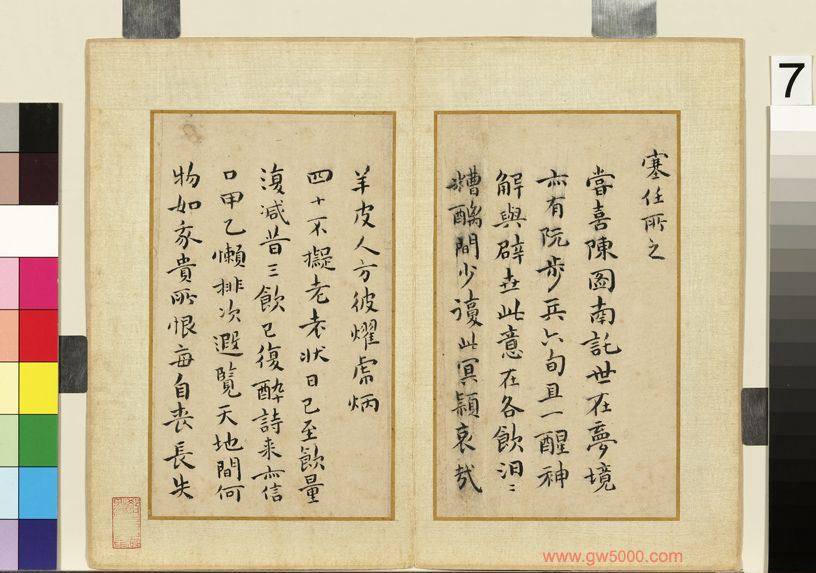 塞任所之
嘗喜陳圖南託世在夢境
亦有阮步兵六旬且一醒神
解與辟世此意在各飲汨〻
糟醨間少讀此冥穎哀哉
羊皮人方彼燿虎炳
四十不擬老老狀日已至飲量
復減昔三飲已復醉詩来亦信
口甲乙懶排次遐覽天地間何
物如象貴所恨每自喪長失
7
www.gw5000.com